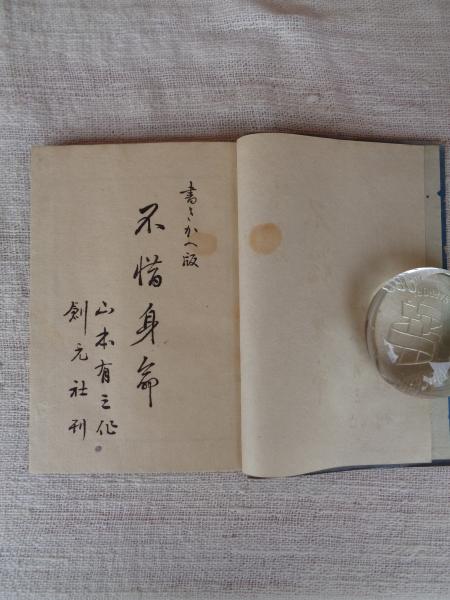 書きかへ版
不惜身命
山本有三作
創元社刊